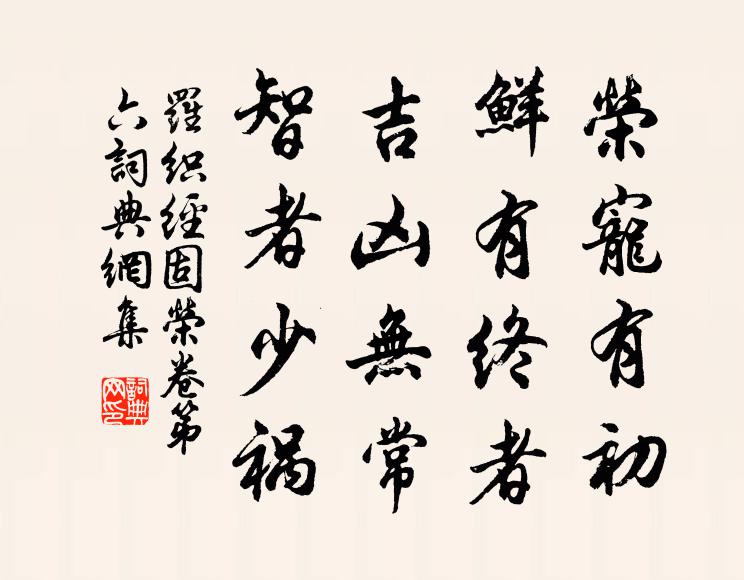 榮寵有初
鮮有終者
吉凶無常
智者少禍
羅織經固榮卷第
六詞典網集
詞典网印